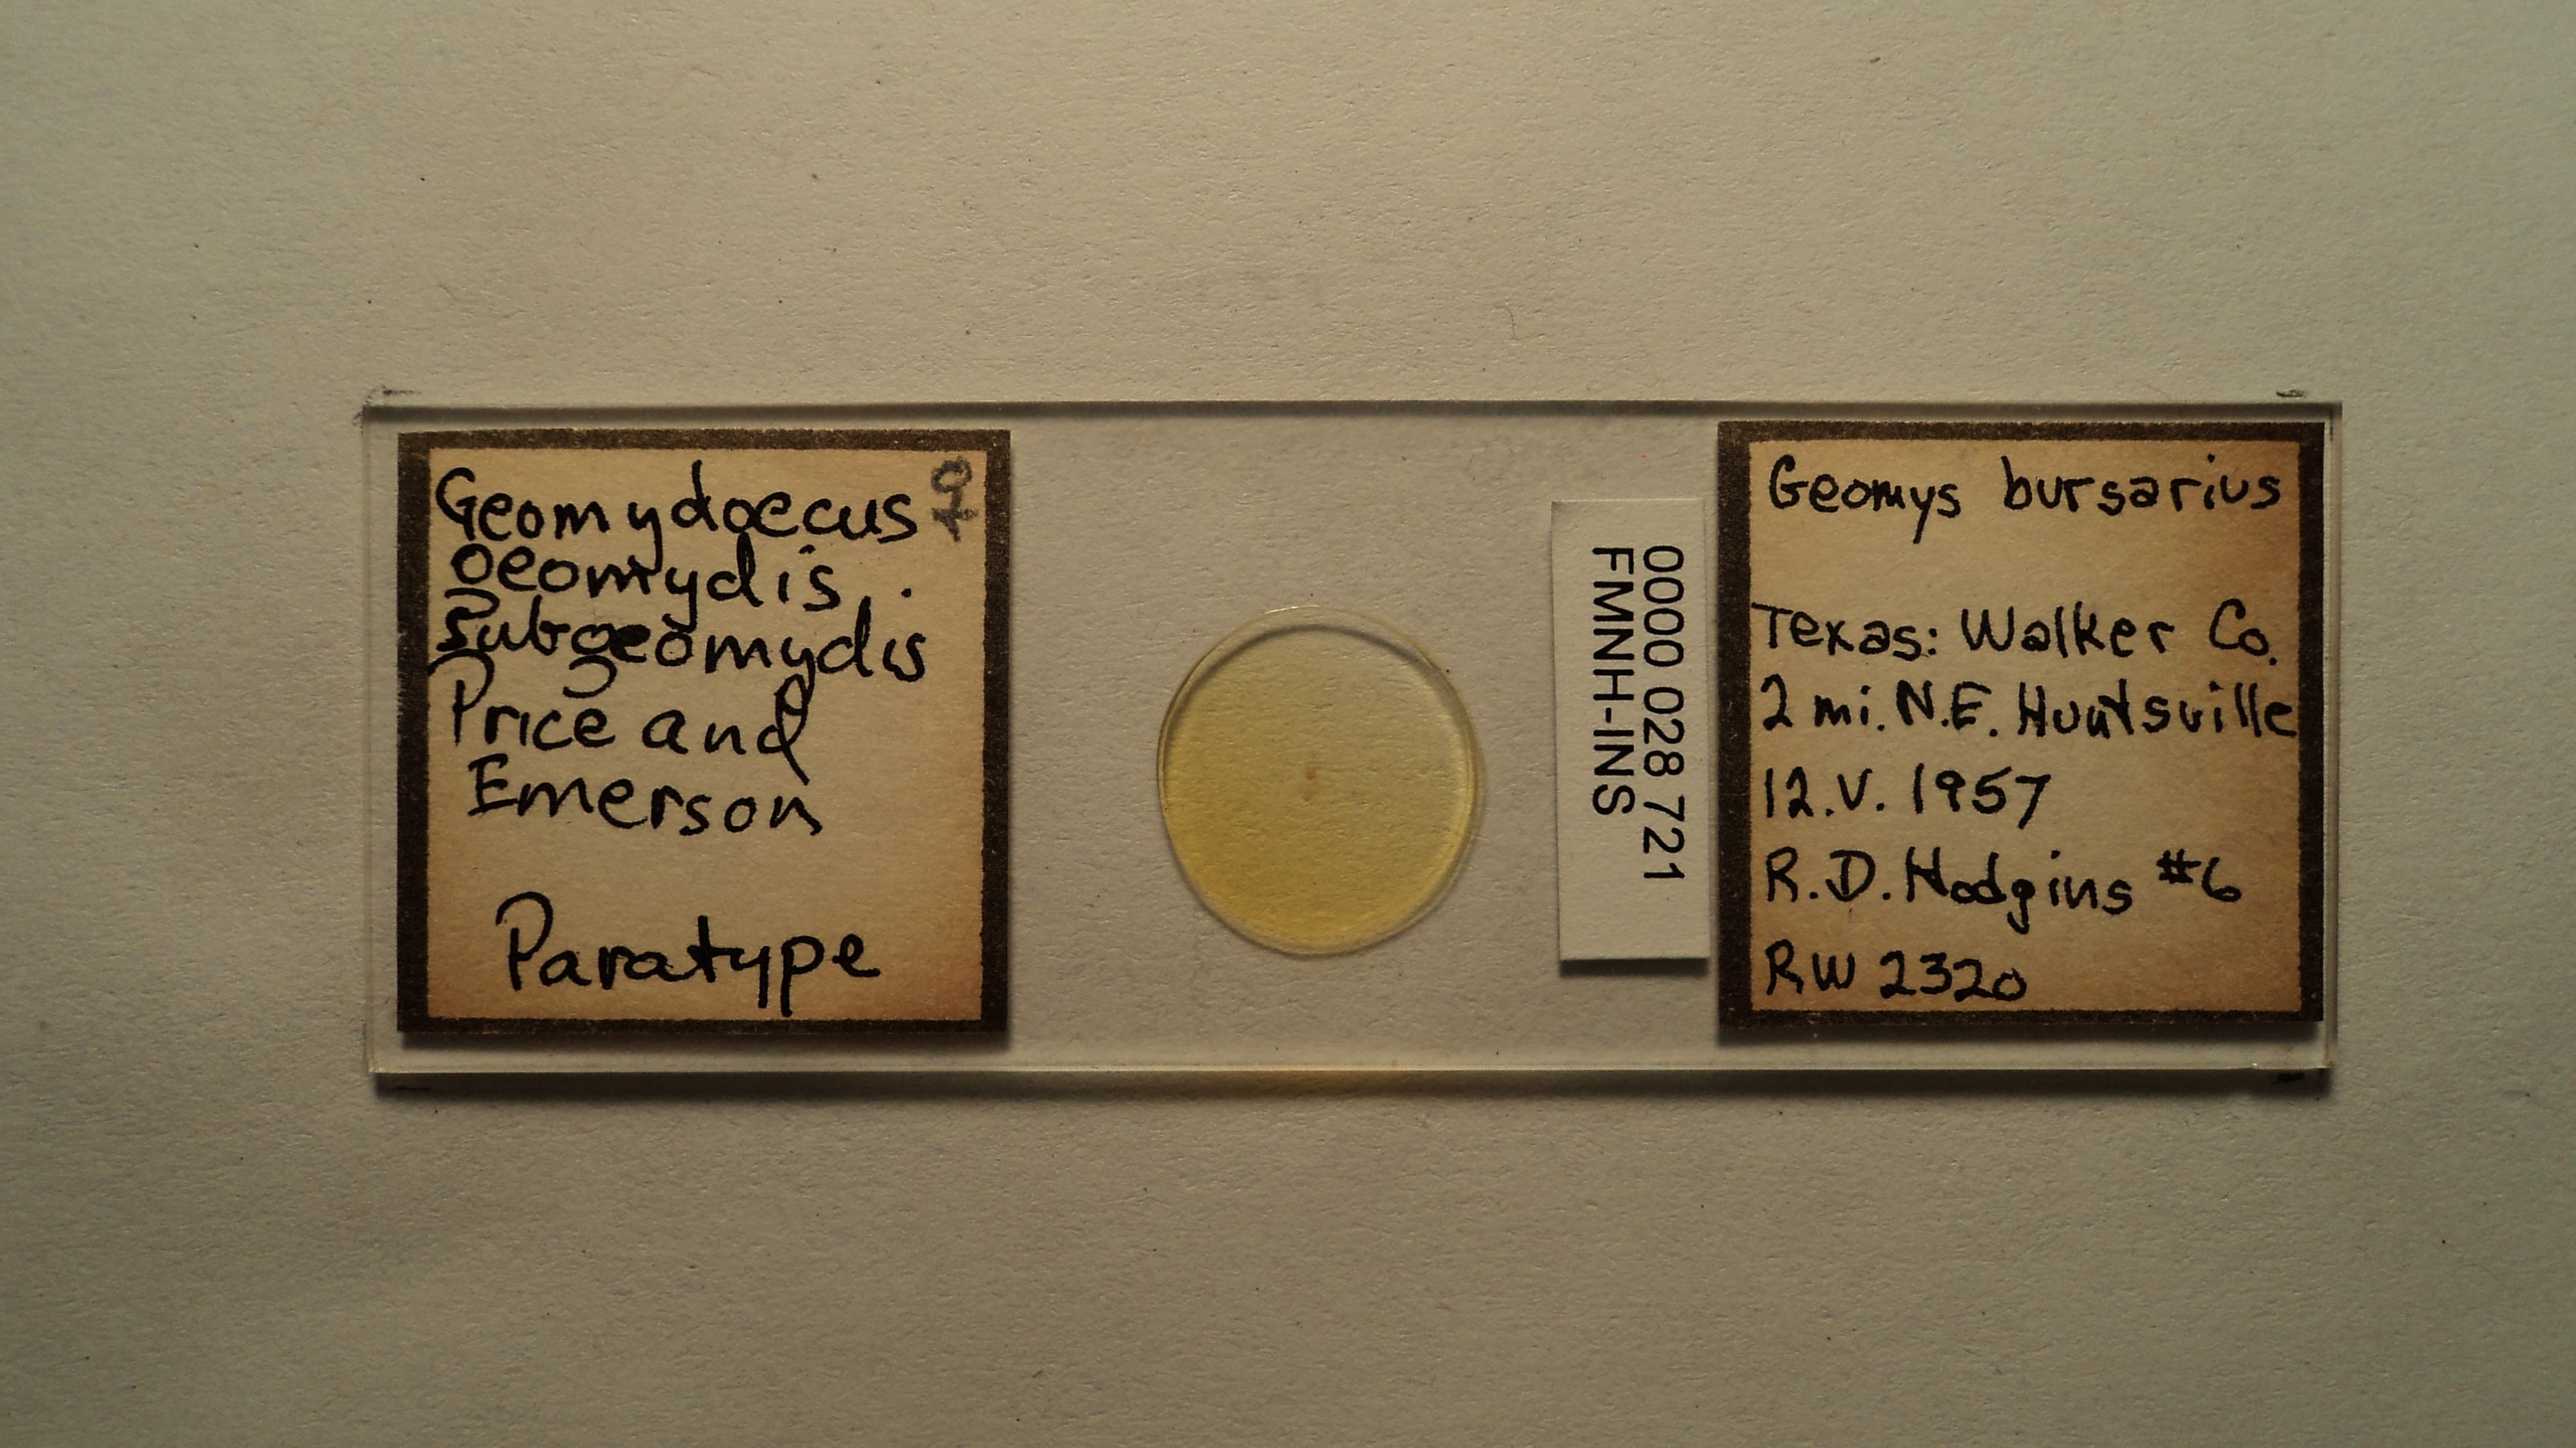 Geomydoecus ♀
geomydis
subgeomydis
Price and
Emerson
Paratype
0000 028 721
FMNH-INS
Geomys bursarius
Texas: Walker Co.
2 mi. N.E. Huntsville
12.V. 1957
R.D. Hodgins #6
RW 2320